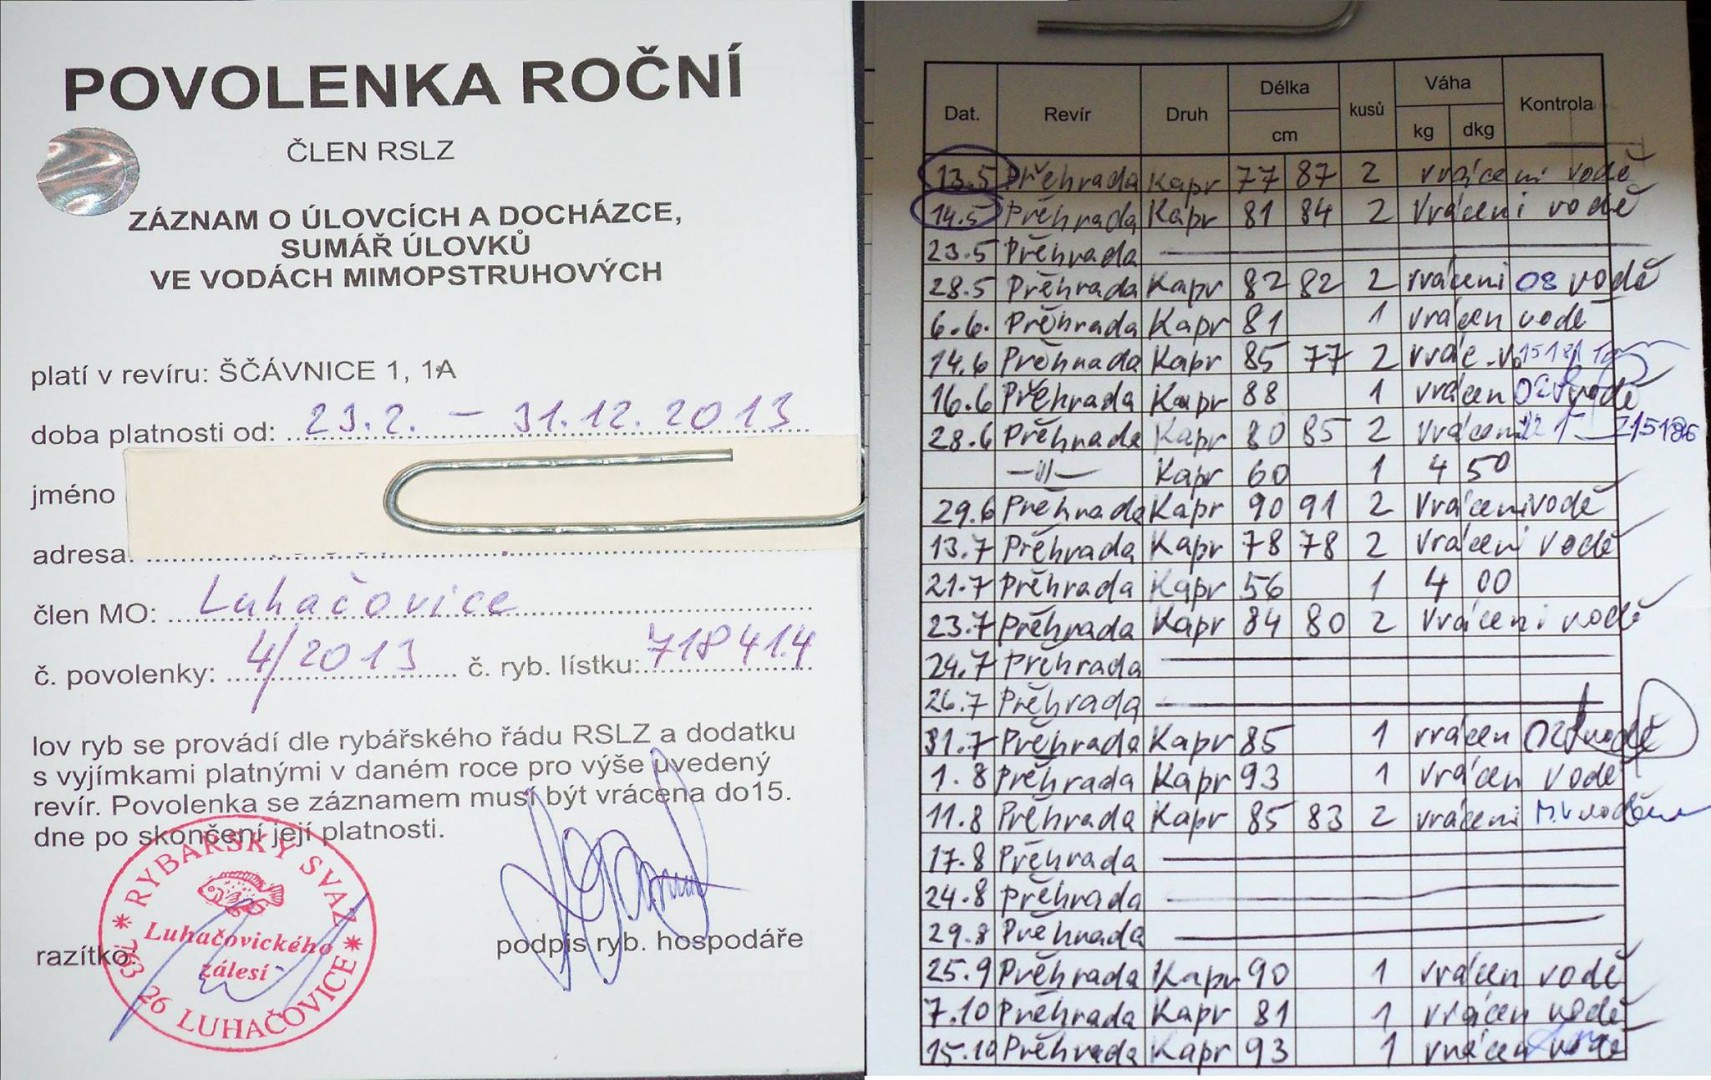 POVOLENKA ROČNÍ
ČLEN RSLZ
ZÁZNAM O ÚLOVCÍCH A DOCHÁZCE,
SUMÁŘ ÚLOVKŮ
VE VODÁCH MIMOPSTRUHOVÝCH
platí v revíru: ŠČÁVNICE 1, 1A
doba platnosti od: 23.2. – 31.12.2013
jméno
adresa.
člen MO: Luhačovice
č. povolenky: 4/2013 č. ryb. lístku: 718414
lov ryb se provádí dle rybářského řádu RSLZ a dodatku
s vyjímkami platnými v daném roce pro výše uvedený
revír. Povolenka se záznamem musí být vrácena do15.
dne po skončení její platnosti.
razítko:
podpis ryb. hospodáře
* RYBÁŘSKÝ SVAZ *
Luhačovického
zálesí
763 26 LUHAČOVICE
Dat. Revír Druh Délka cm kusů Váha kg dkg Kontrola
13.5 Přehrada Kapr 77 87 2 vráceni vodě
14.5 Přehrada Kapr 81 84 2 Vráceni vodě
23.5 Přehrada
28.5 Přehrada Kapr 82 82 2 vráceni 08 vodě
6.6. Přehrada Kapr 81 1 vrácen vodě
14.6 Přehrada Kapr 85 77 2
16.6 Přehrada Kapr 88 1 vrácen vodě
28.6 Přehrada Kapr 80 85 2 Vráceni 215186
–〃– Kapr 60 1 4 50
29.6 Přehrada Kapr 90 91 2 Vráceni vodě
13.7 Přehrada Kapr 78 78 2 Vráceni vodě
21.7 Přehrada Kapr 56 1 4 00
23.7 Přehrada Kapr 84 80 2 Vráceni vodě
24.7 Přehrada
26.7 Přehrada
31.7 Přehrada Kapr 85 1 vrácen vodě
1.8 Přehrada Kapr 93 1 vrácen vodě
11.8 Přehrada Kapr 85 83 2 vráceni
17.8 Přehrada
24.8 Přehrada
29.8 Přehrada
25.9 Přehrada Kapr 90 1 vrácen vodě
7.10 Přehrada Kapr 81 1 vrácen vodě
15.10 Přehrada Kapr 93 1 vrácen vodě